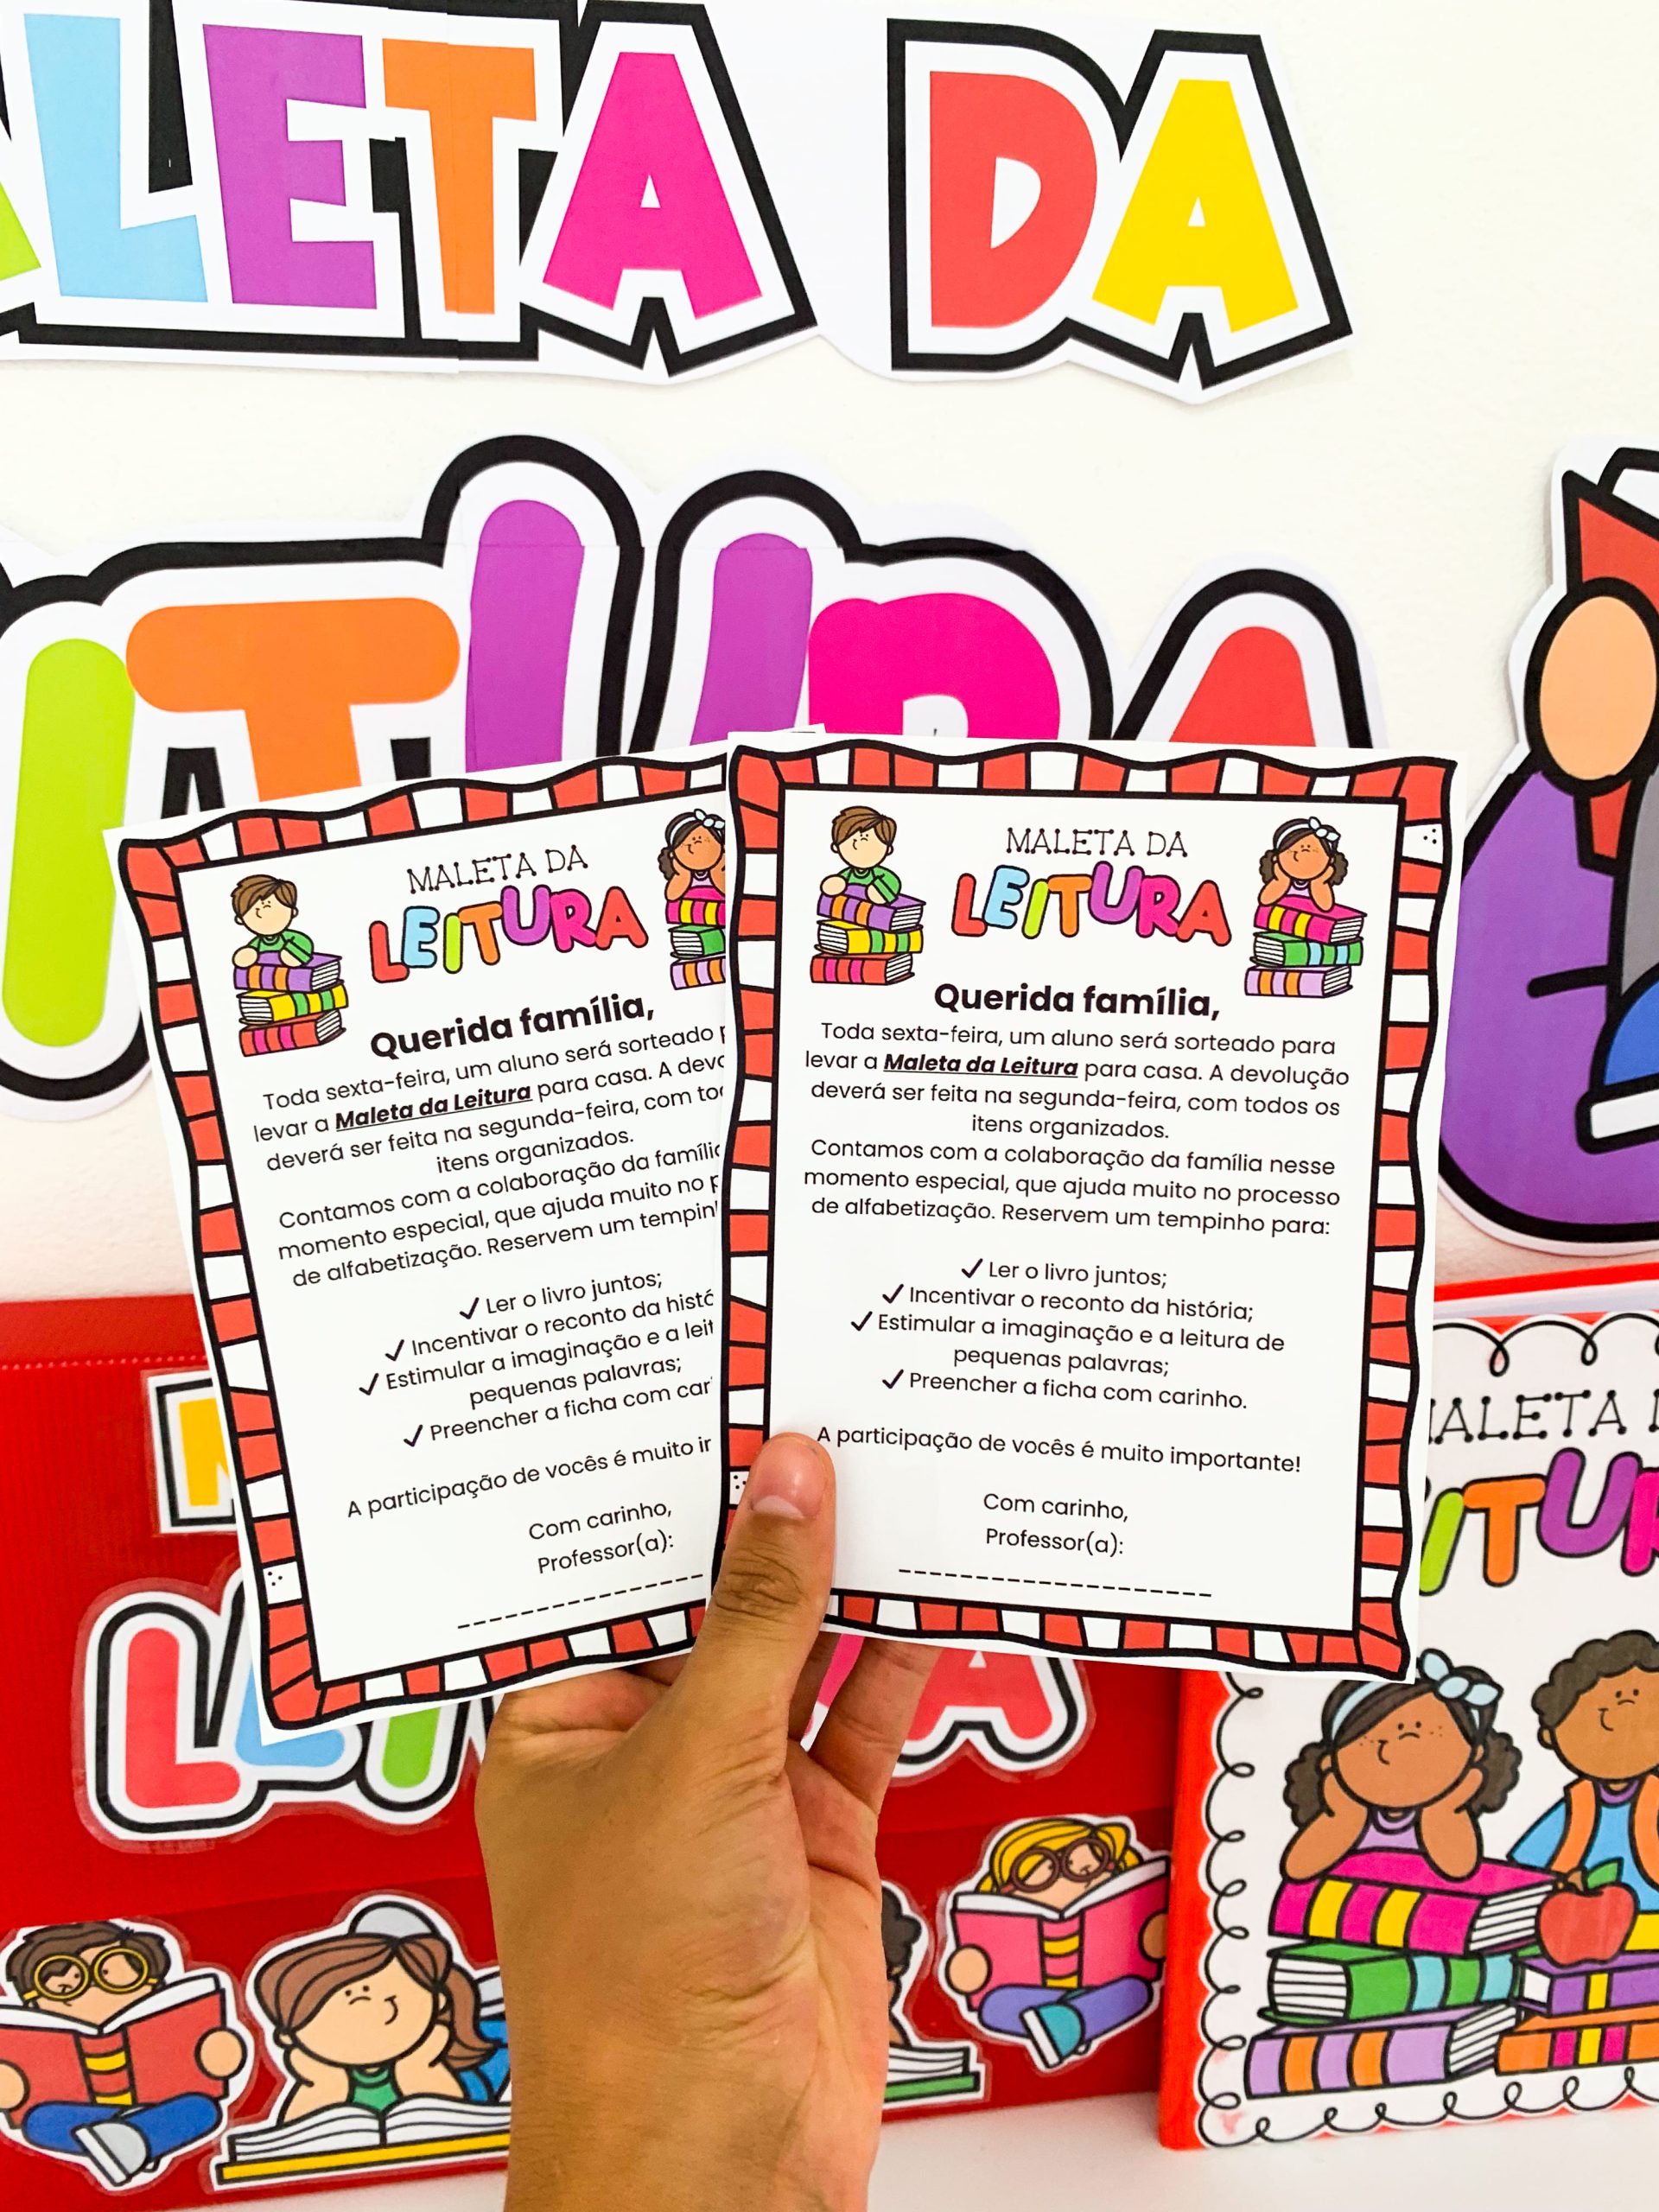 ALETA DA
ITURA
MALETA DA
LEITURA
Querida família,
Toda sexta-feira, um aluno será sorteado
levar a Maleta da Leitura para casa. A
deverá ser feita na segunda-feira, com
itens organizados.
Contamos com a colaboração da
momento especial, que ajuda muito no
de alfabetização. Reservem um
Ler o livro juntos;
Incentivar o reconto da
Estimular a imaginação e a
pequenas palavras;
Preencher a ficha com
A participação de vocês é muito
Com carinho,
Professor(a):
MALETA DA
LEITURA
Querida família,
Toda sexta-feira, um aluno será sorteado para
levar a Maleta da Leitura para casa. A devolução
deverá ser feita na segunda-feira, com todos os
itens organizados.
Contamos com a colaboração da família nesse
momento especial, que ajuda muito no processo
de alfabetização. Reservem um tempinho para:
✓ Ler o livro juntos;
✓ Incentivar o reconto da história;
✓ Estimular a imaginação e a leitura de
pequenas palavras;
✓ Preencher a ficha com carinho.
A participação de vocês é muito importante!
Com carinho,
Professor(a):
ALETA
ITUR